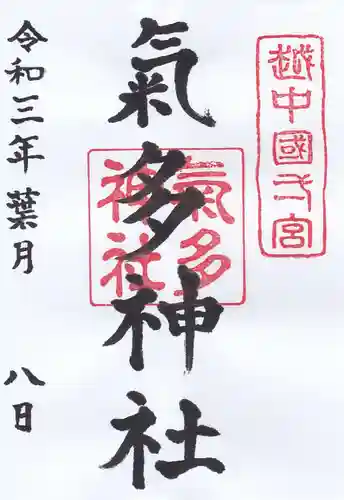 越中國弌宮
氣多神社
氣多
神社
令和三年葉月
八日